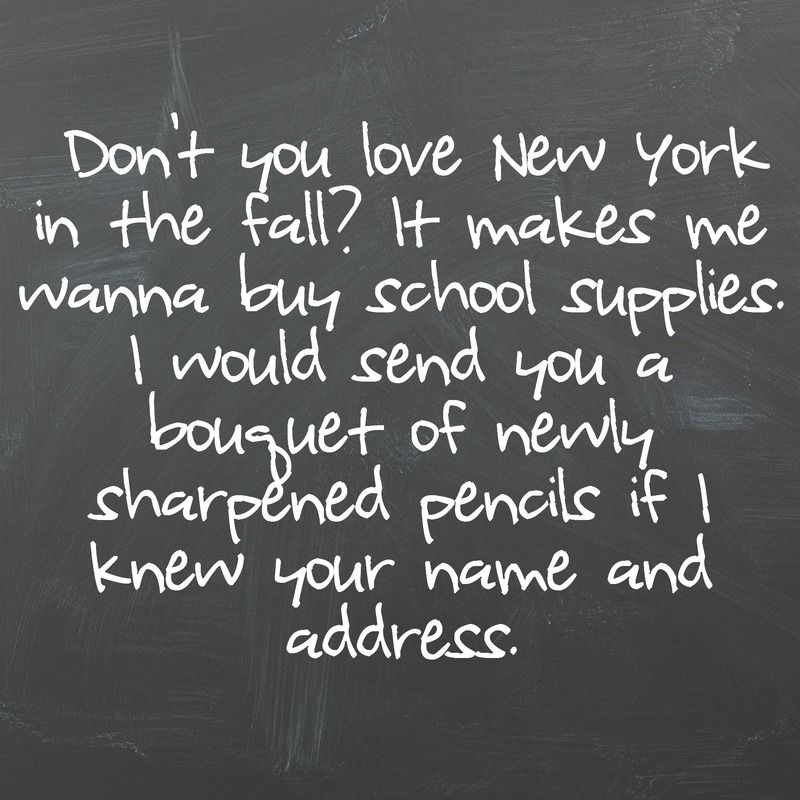 Don't you love New York
in the fall? It makes me
wanna buy school supplies.
I would send you a
bouquet of newly
sharpened pencils if I
knew your name and
address.